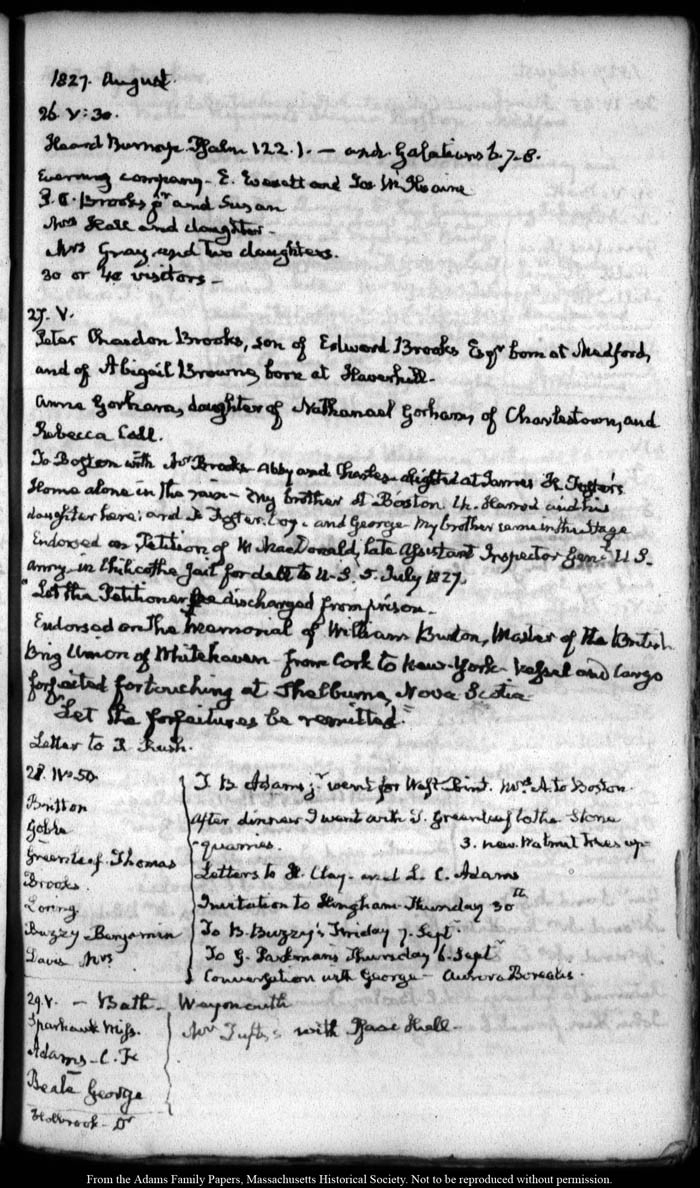 1827. August.
26. V:30.
Heard Burnap. Psalm 122. 1. — and Galatians 6. 7-8.
Evening company — E. Everett and Jos.
P. C. Brooks Jr. and Susan
Mrs Hall and daughter —
Mrs Gray and two daughters.
30 or 40 visitors —
27. V.
Peter Chardon Brooks, son of Edward Brooks Esqr born at Medford,
and of Abigail Browne, born at Haverhill.
Anne Gorham, daughter of Nathanael Gorham, of Charlestown, and
Rebecca Call.
To Boston with Mr Brooks Abby and Charles alighted at James H. Foster's
Home alone in the rain — my brother at Boston. Ch. Harrod and his
daughter here: and J. Foster. boy. and George. My brother came in the Stage
Endorsed on Petition of M. MacDonald, late Assistant Inspector Genl. U.S.
Army in Chilicothe Jail for debt to U.S. 5. July 1827,
"Let the Petitioner be discharged from prison.
Endorsed on the Memorial of William Burton, Master of the British
Brig Union of Whitehaven from Cork to New-York. Vessel and Cargo
forfeited for touching at Shelburne, Nova Scotia
"Let the forfeitures be remitted."
Letter to R. Rush.
28. IV:50
Britton
Greenleaf. Thomas
Brooks.
Loring
Bussy Benjamin
Davis Mrs
T. B. Adams jr. went for West Point. Mrs A. to Boston.
After dinner I went with T. Greenleaf to the Stone
quarries. 3. new Walnut trees up
Letters to H. Clay. and L. C. Adams
Invitation to Hingham Thursday 30th
To B. Bussy's Friday 7. Septr
To G. Parkman's Thursday 6. Septr
Conversation with George — Aurora Borealis.
29. V. — Bath — Weymouth
Sparhawk Miss.
Adams — C. F.
Beale George
Holbrook — Dr
Mr Tufts with Isaac Hull —
From the Adams Family Papers, Massachusetts Historical Society. Not to be reproduced without permission.